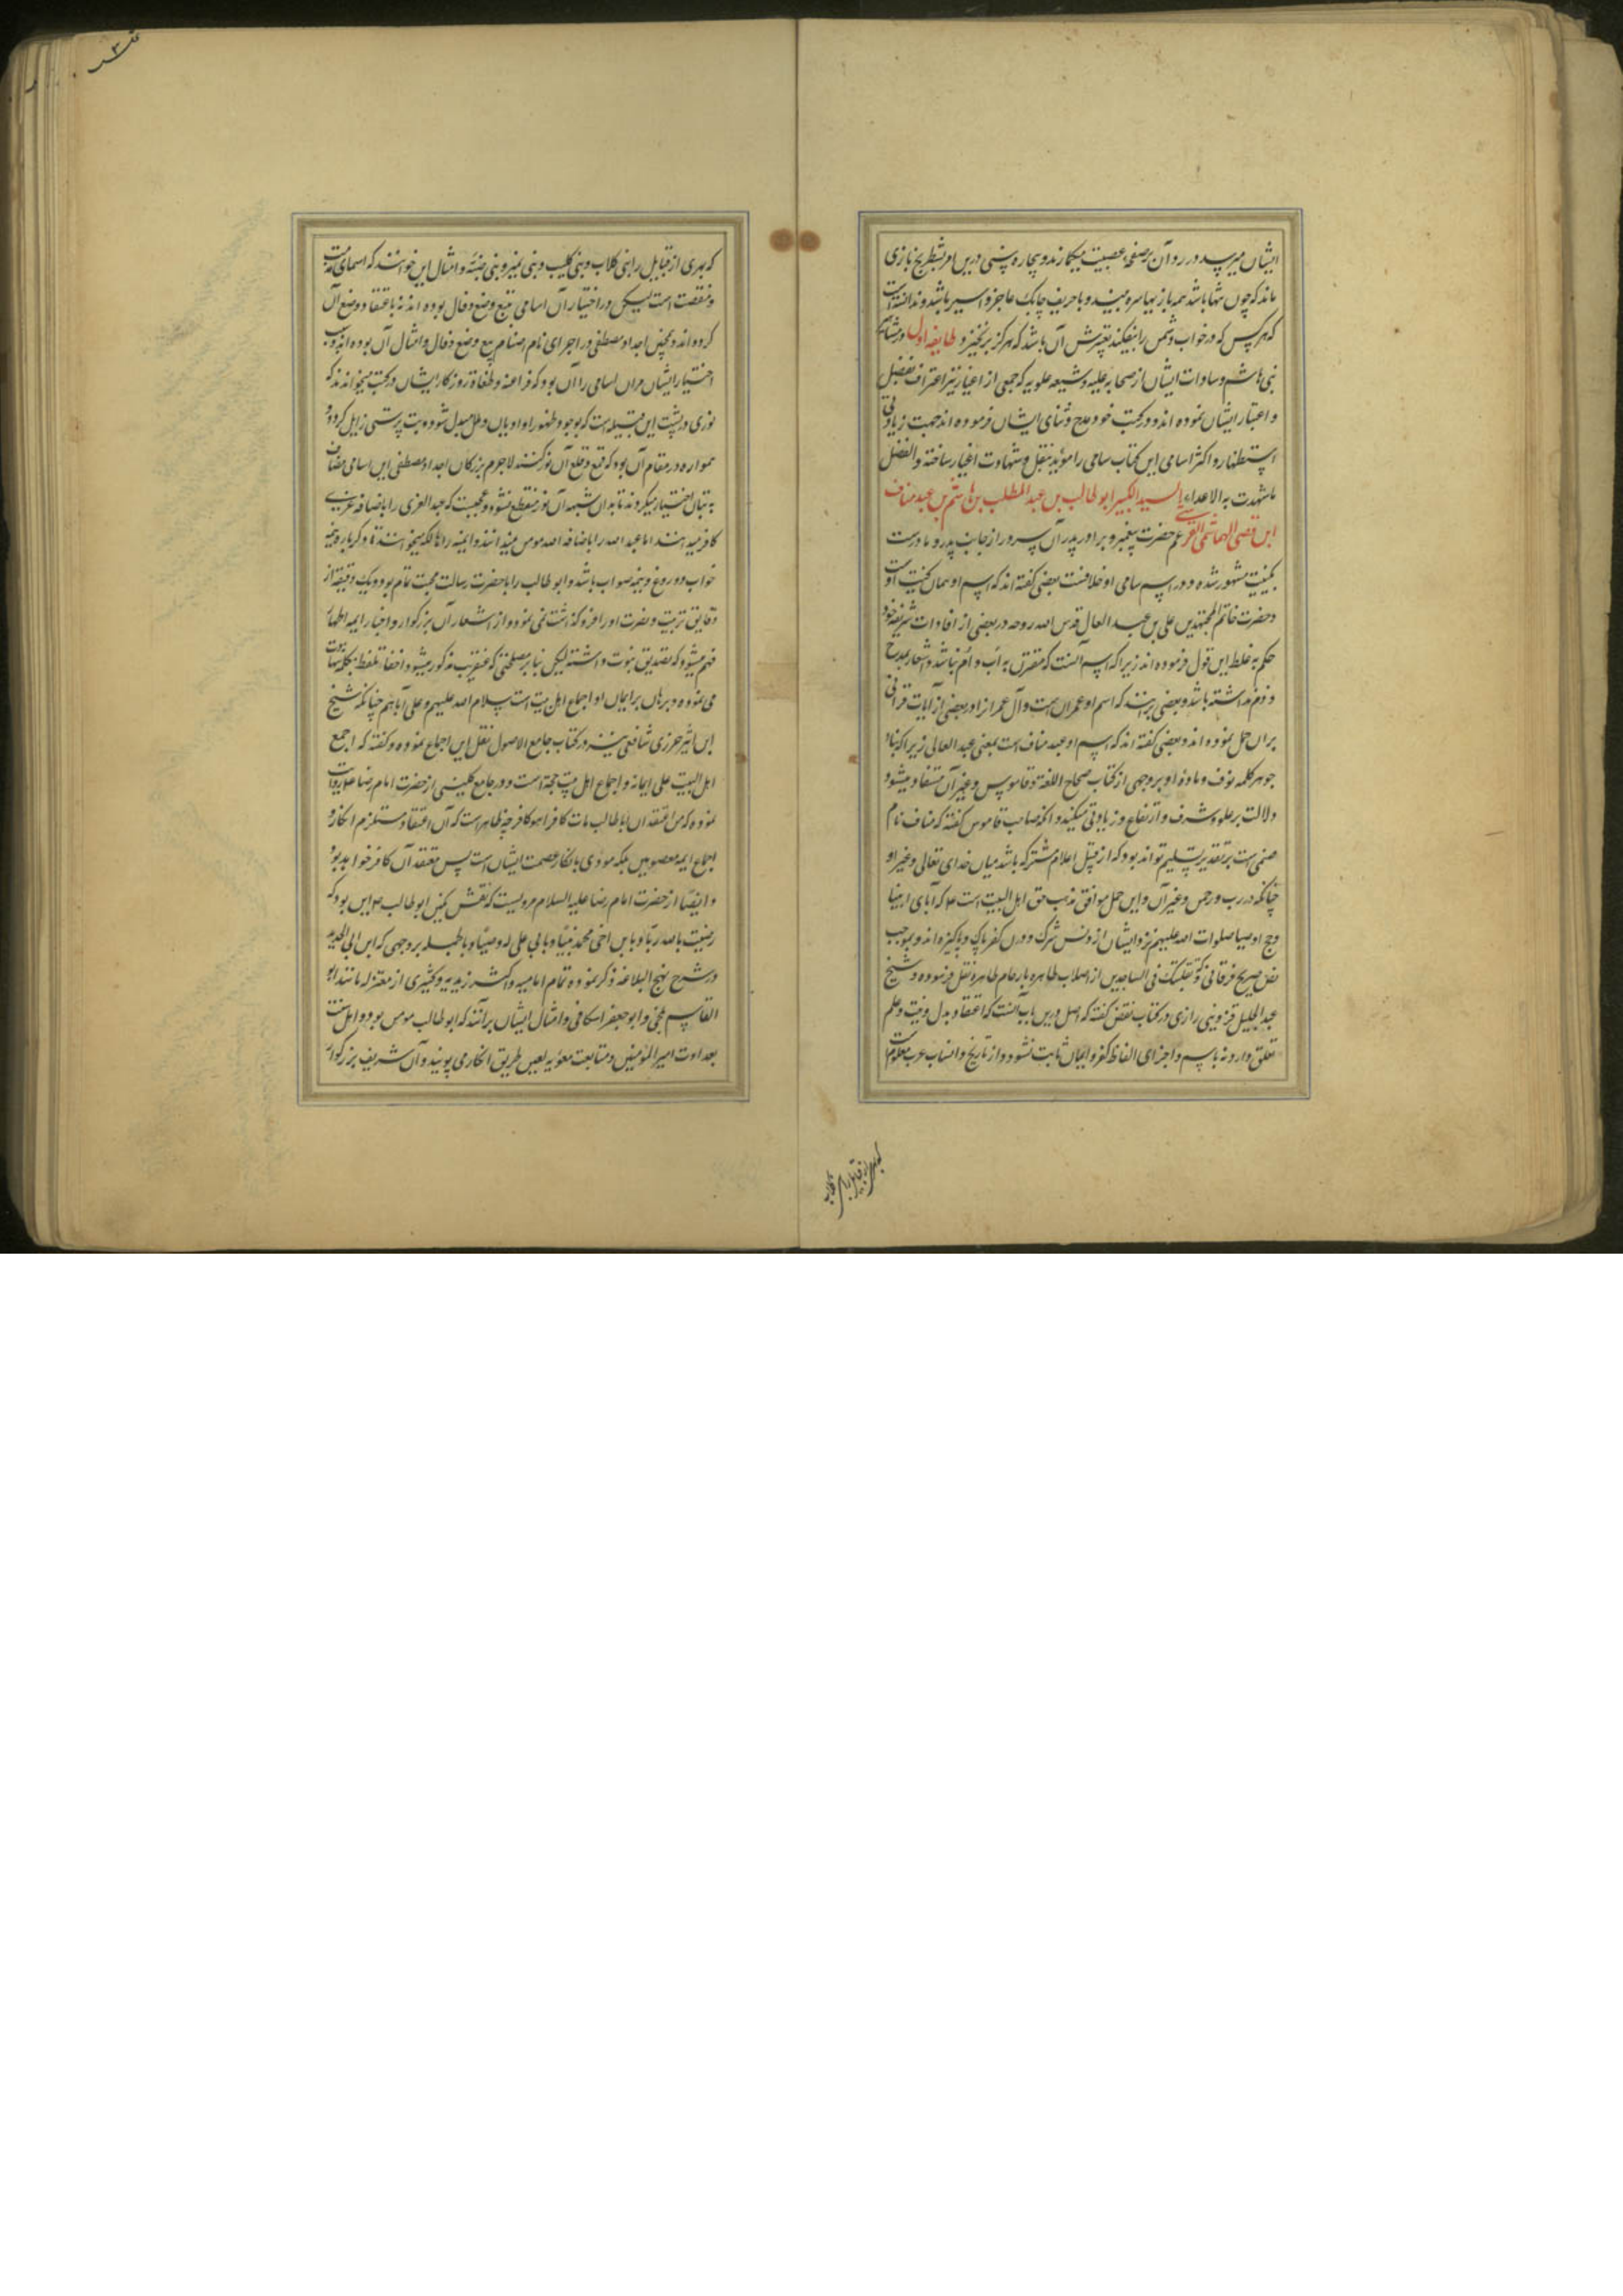 ایشان میرسد در رد آن بر صفحه عصبیت میکمارند و بیچاره سنی درین امر بشطرنج بازی
ماند که چون تنها باشد همه بازیها سره بیند و با حریف چابک عاجز و اسیر باشد و ندانسته است
که هر کس که در خواب دشمن را بیفکند تعبیرش آن باشد که هرگز بر نخیزد طایفه اول در مشاهیر
بنی هاشم و سادات ایشان از صحابه علیه و شیعه علویه که جمعی از اغیار نیز اعتراف بفضل
و اعتبار ایشان نموده اند و در کتب خود مدح و ثنای ایشان فرموده اند جهت زیادتی
استظهار و اکثر اسامی این کتاب سامی را مؤید بنقل و شهادت اغیار ساخته والفضل
ما شهدت به الاعداء السید الکبیر ابو طالب بن عبد المطلب بن هاشم بن عبد مناف
ابن قصی الهاشمی القرشی عم حضرت پیغمبر و برادر پدر آن سرور از جانب پدر و مادرست
بکنیت مشهور شده و در اسم سامی او خلافست بعضی گفته اند که اسم او همان کنیت اوست
و حضرت خاتم المجتهدین علی بن عبد العال قدس الله روحه در بعضی از افادات شریفه خود
حکم به غلط این قول فرموده اند زیرا که اسم آنست که مقترن به اب و ام نباشد و اشعار بمدح
و ذم نداشته باشد و بعضی برانند که اسم او عمران است و آل عمران را در بعضی از آیات قرانی
بران حمل نموده اند و بعضی گفته اند که اسم او عبد مناف است بمعنی عبد العالی زیرا که بناء
جوهر کلمه نوف و ماده او بر وجهی از کتاب صحاح اللغة و قاموس و غیر آن مستفاد میشود
دلالت بر علو و شرف و ارتفاع و زیادتی میکند و آنکه صاحب قاموس گفته که مناف نام
صنمی است بر تقدیر تسلیم تواند بود که از قبیل اعلام مشترکه باشد میان خدای تعالی و غیر او
چنانکه در رب و رحمن و غیر آن و این حمل موافق مذهب حق اهل البیت است که آبای انبیا
و اوصیا صلوات الله علیهم نزد ایشان از دنس شرک و درن کفر پاک و پاکیزه اند و بموجب
نص صریح فرقانی که و تقلبک فی الساجدین از اصلاب طاهره بارحام طاهره نقل فرموده و شیخ
عبد الجلیل قزوینی رازی در کتاب نقض گفته که اصل درین باب آنست که اعتقاد بدل و نیت و علم
تعلق دارد نه باسم و اجرای الفاظ کفر و ایمان ثابت نشود و از تاریخ و انساب عرب معلومست
که بعضی از قبایل را بنی کلاب
که بعضی از قبایل را بنی کلاب و بنی کلیب و بنی نمیر و بنی ضبّه و امثال این خوانند که اسمای مذمت
و منقصت است لیکن در اختیار آن اسامی تتبع وضع و فال بوده اند نه باعتقاد وضع آن
کرده اند و همچنین اجداد مصطفی در اجرای نام اصنام تبع وضع و فال و امثال آن بوده اند و سبب
اختیار ایشان مران اسامی را آن بود که فراعنه و طغاة روزگار ایشان در کتب میخواندند که
نوری در پشت این قبیله است که بوجود و ظهور او ادیان و ملل مبدل شود و بت پرستی زایل گردد و
همواره در مقام آن بود که قمع و قلع آن نور کنند لاجرم بزرکان اجداد مصطفی این اسامی مضاف
به بتان اختیار میکردند تا بدان شبهه آن نور منقطع نشود و عجبست که عبد العزی را باضافه عزی
کافر میدانند اما عبد الله را باضافه الله مومن میدانند و آمنه را هالکه میخوانند و کر پاره و نیمه
خواب و دروغ و نیمه صواب باشد و ابو طالب را با حضرت رسالت محبت تمام بود و یک دقیقه از
دقایق تربیت و نصرت او را فرو گذاشت نمی نمود و از اشعار آن بزرکوار و اخبار ایمه اطهار
فهم میشود که تصدیق نبوت داشته لیکن بنا بر مصلحتی که عنقریب مذکور میشود اخفاء تلفظ بکلمه شهادت
می نموده و برهان بر ایمان او اجماع اهل بیت است سلام الله علیهم و علی آبائهم چنانکه شیخ
ابن اثیر جزری شافعی نیز در کتاب جامع الاصول نقل این اجماع نموده و گفته که اجمع
اهل البیت علی ایمانه و اجماع اهل بیت حجة است و در جامع کلینی از حضرت امام رضا ع روایت
نموده که من اعتقد ان ابا طالب مات کافرا هو کافر چه ظاهر است که آن اعتقاد مستلزم انکار
اجماع ایمه معصومین بلکه مودی بانکار عصمت ایشان است پس معتقد آن کافر خواهد بود
و ایضا از حضرت امام رضا علیه السلام مرویست که نقش نگین ابو طالب این بود که
رضیت بالله ربا و بابن اخی محمد نبیا و بابنی علی له وصیا و بالجمله بر وجهی که ابن ابی الحدید
در شرح نهج البلاغه ذکر نموده تمام امامیه و اکثر زیدیه و کثیری از معتزله مانند ابو
القاسم بلخی و ابو جعفر اسکافی و امثال ایشان برآنند که ابو طالب مومن بود و اهل سنت
بعداوت امیر المؤمنین و متابعت معویه لعین طریق انکار می پویند و آن شریف بزرکوار